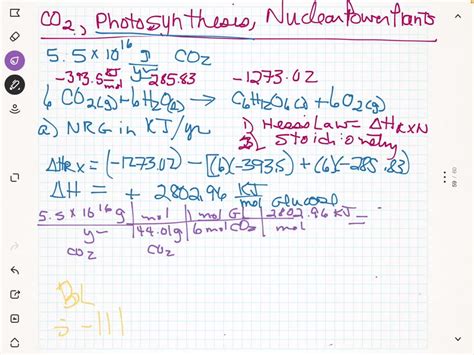 CO2, Photosynthesis, Nuclear Power Plants
5.5 x 10^16 g/yr CO2
-393.5 kJ/mol -285.83 -1273.02
6 CO2(g) + 6 H2O(l) → C6H12O6(s) + 6O2(g)
a) NRG in KJ/yr 1) Hess's Law = ΔHRXN
2) Stoichiometry
ΔHRX = (-1273.02) - [(6)(-393.5) + (6)(-285.83)
ΔH = + 2802.96 KJ/mol Glucose
5.5 x 10^16 g | mol | 1 mol GL | 2802.96 KJ =
yr | 44.01g | 6 mol CO2 | mol
CO2 CO2